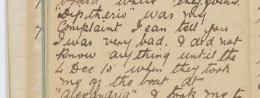 Diptheria was my
complaint I can tell you
I was very bad. I did not
know anything until the
4 Dec 15 when they took
me of the boat at
"alexandria" I took me to